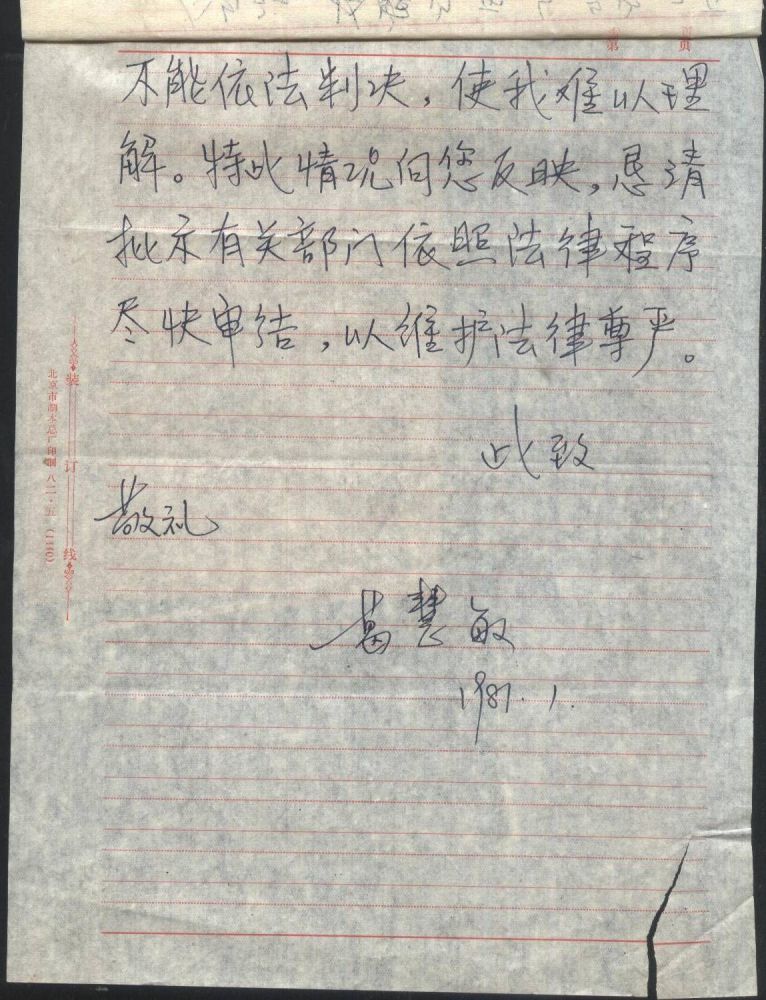 第 页
不能依法判决，使我难以理
解。特此情况向您反映，恳请
批示有关部门依照法律程序
尽快审结，以维护法律尊严。
此致
敬礼
葛慧敏
1987.1.
装订线
北京市 印制 八二·五